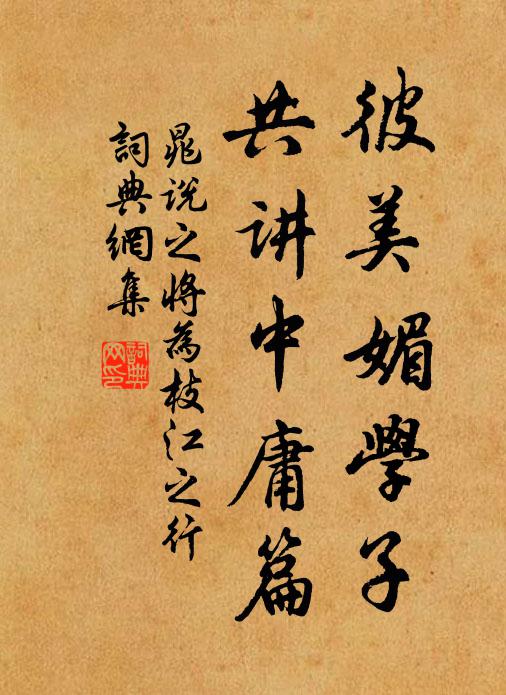 彼美媚學子
共讲中庸篇
晁说之將為枝江之行
詞典網集
詞典網印